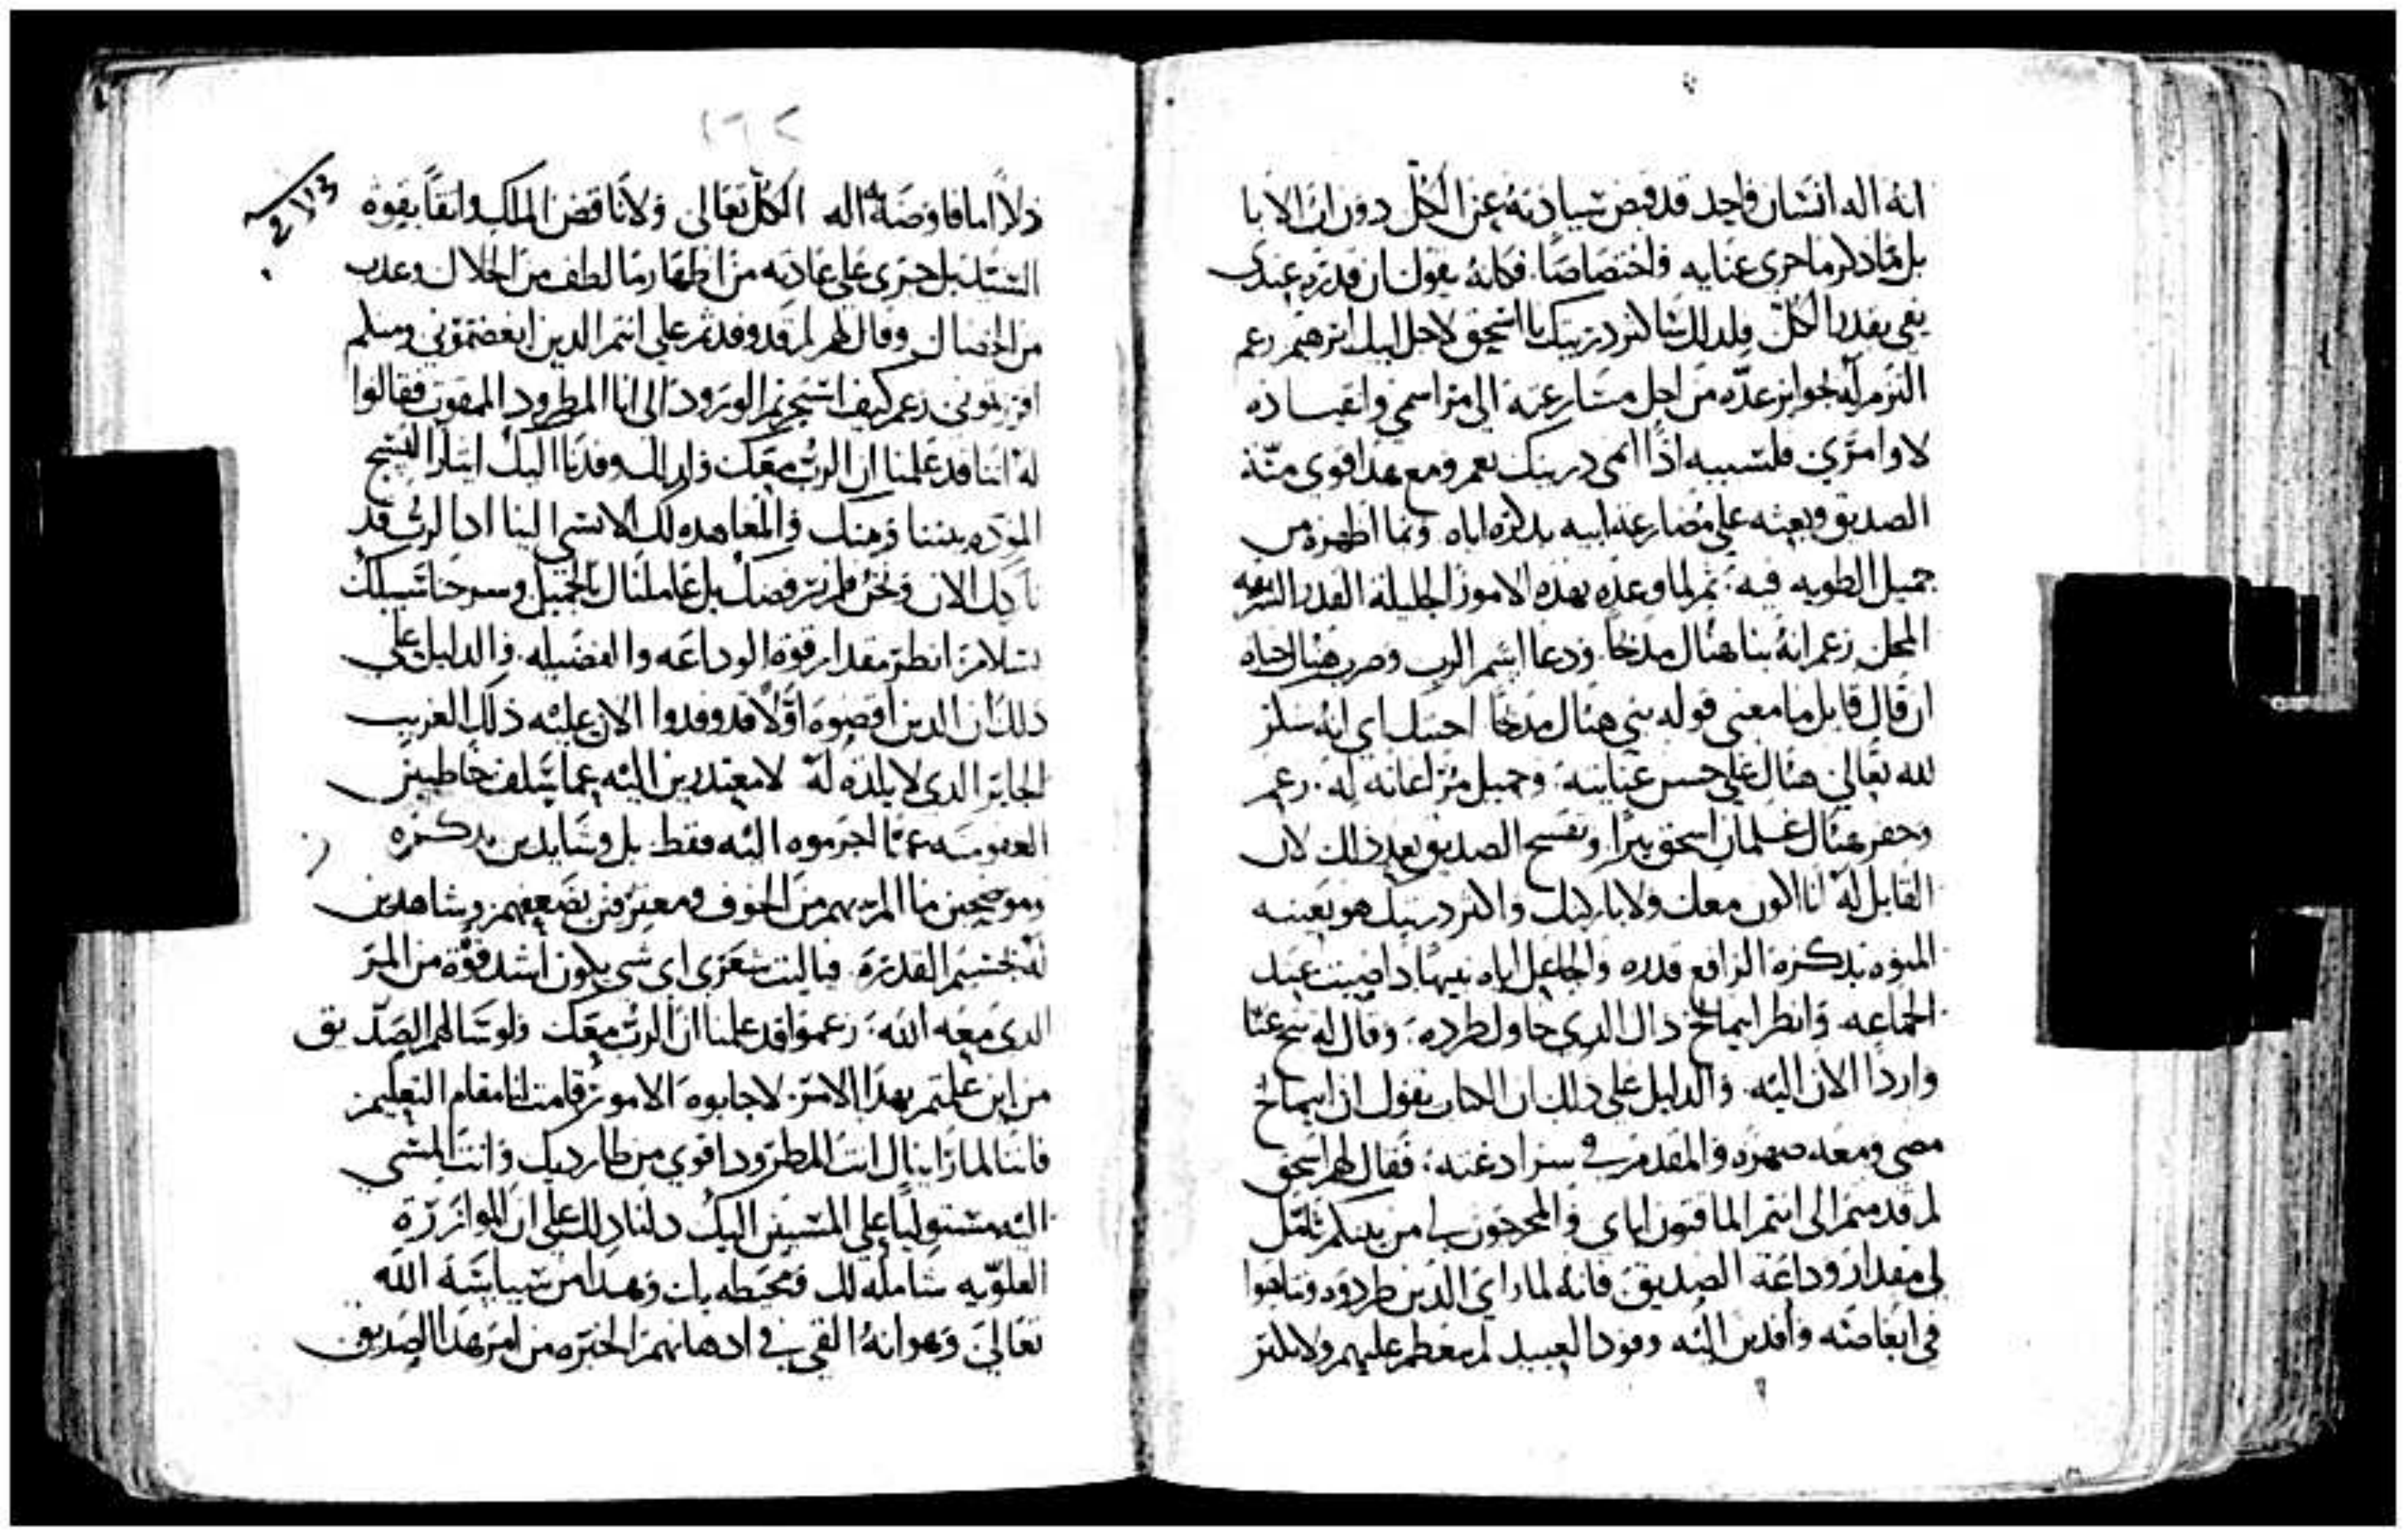 انه اله انسان واحد قد قبض سيادته عن الكل دون ان الابا
بل مما ذكر ما جرى عنايه واختصاصا. فكانه يقول ان قدره عندى
يفى بقدر الكل فلذلك ساكثر ذريتك يا اسحق لاجل ابيك ابرهيم زعم
التزم له بجوايز عده من اجل مسارعته الى مراسمى وانقياده
لاوامرى فلسببه اذا انمى ذريتك نعم ومع هذا قوى منة
الصديق وبعثه على مضارعة ابيه بذكره اياه وبما اظهره من
جميل الطويه فيه: ثم لما وعده بهذه الامور الجليلة القدر الشريفه
المحل زعم انه بنا هناك مذبحا. ودعا اسم الرب وضرب هناك خباه
ان قال قايل ما معنى قوله بنى هناك مذبحا احسبك اى انه شكر
لله تعالى هناك على حسن عنايته. وجميل مراعاته له. زعم
وحفر هناك غلمان اسحق بيرا. وتفسح الصديق بعد ذلك لان
القايل له انا اكون معك ولاباركنك واكثر ذريتك هو بعينه
المنوه بذكره الرافع قدره والجاعل اياه نبيها ذا صيت عند
الجماعه. وانظر ابيمالخ ذاك الذى حاول طرده. وقال له تنح عنا
واردا الان اليه. والدليل على ذلك ان الكتاب يقول ان ابيمالخ
مضى ومعه صهره والمقدم فى سر ادغنه: فقال لهم اسحق
لم قدمتم الى انتم الماقتون اياى والمخرجون لى من بينكم تامل
لى مقدار وداعة الصديق فانه لما راى الذين طردوه وتناهوا
فى ابغاضته وافدين اليه وفود العبيد لم يتعظم عليهم ولا بلتر
ذلا اما فاوضه اله الكل تعالى ولا ناقض الملك واثقا بقوة
السيد بل جرى على عادته من اظهار ما لطف من الخلال وعذب
من الخصال وقال لهم لم قد وفدتم على انتم الذين ابغضتمونى وسلم
افرزتمونى زعم كيف استجزتم الورود الى انا المطرود الممقوت فقالوا
له اننا قد علمنا ان الرب معك ولذلك وفدنا اليك ايثارا لنسج
المودة بيننا وبينك والمعاهده لك الا تسى الينا اذ الرب قد
باركك الان ونحن فلم نرفضك بل عاملناك بالجميل وسرحنا سبيلك
بسلام: انظر مقدار قوة الوداعه والفضيله. والدليل على
ذلك ان الذين اقصوه اولا قد وفدوا الان عليه ذلك الغريب
الجاير الذى لا بلده له لا معتذرين اليه عما سلف خاطبين
العفو منه عما اجرموه اليه فقط. بل وشايدين بذكره
وموضحين ما الم بهم من الخوف ومعترفين بضعفهم وشاهدين
له بجسيم القدرة. فياليت شعرى اى شى يكون اشد قوة من المر
الذى معه الله: زعموا قد علمنا ان الرب معك ولو سالهم الصديق
من اين علمتم بهذا الامر. لاجابوه الامور قامت لنا مقام التعليم:
فاننا لما رايناك انت المطرود اقوى من طارديك وانت المسى
اليه مستوليا على المسيين اليك دلنا ذلك على ان الموازرة
العلويه شامله لك ومحيطه بك وهذا من سياسة الله
تعالى وهو انه القى فى اذهانهم الخبره من امر هذا الصديق